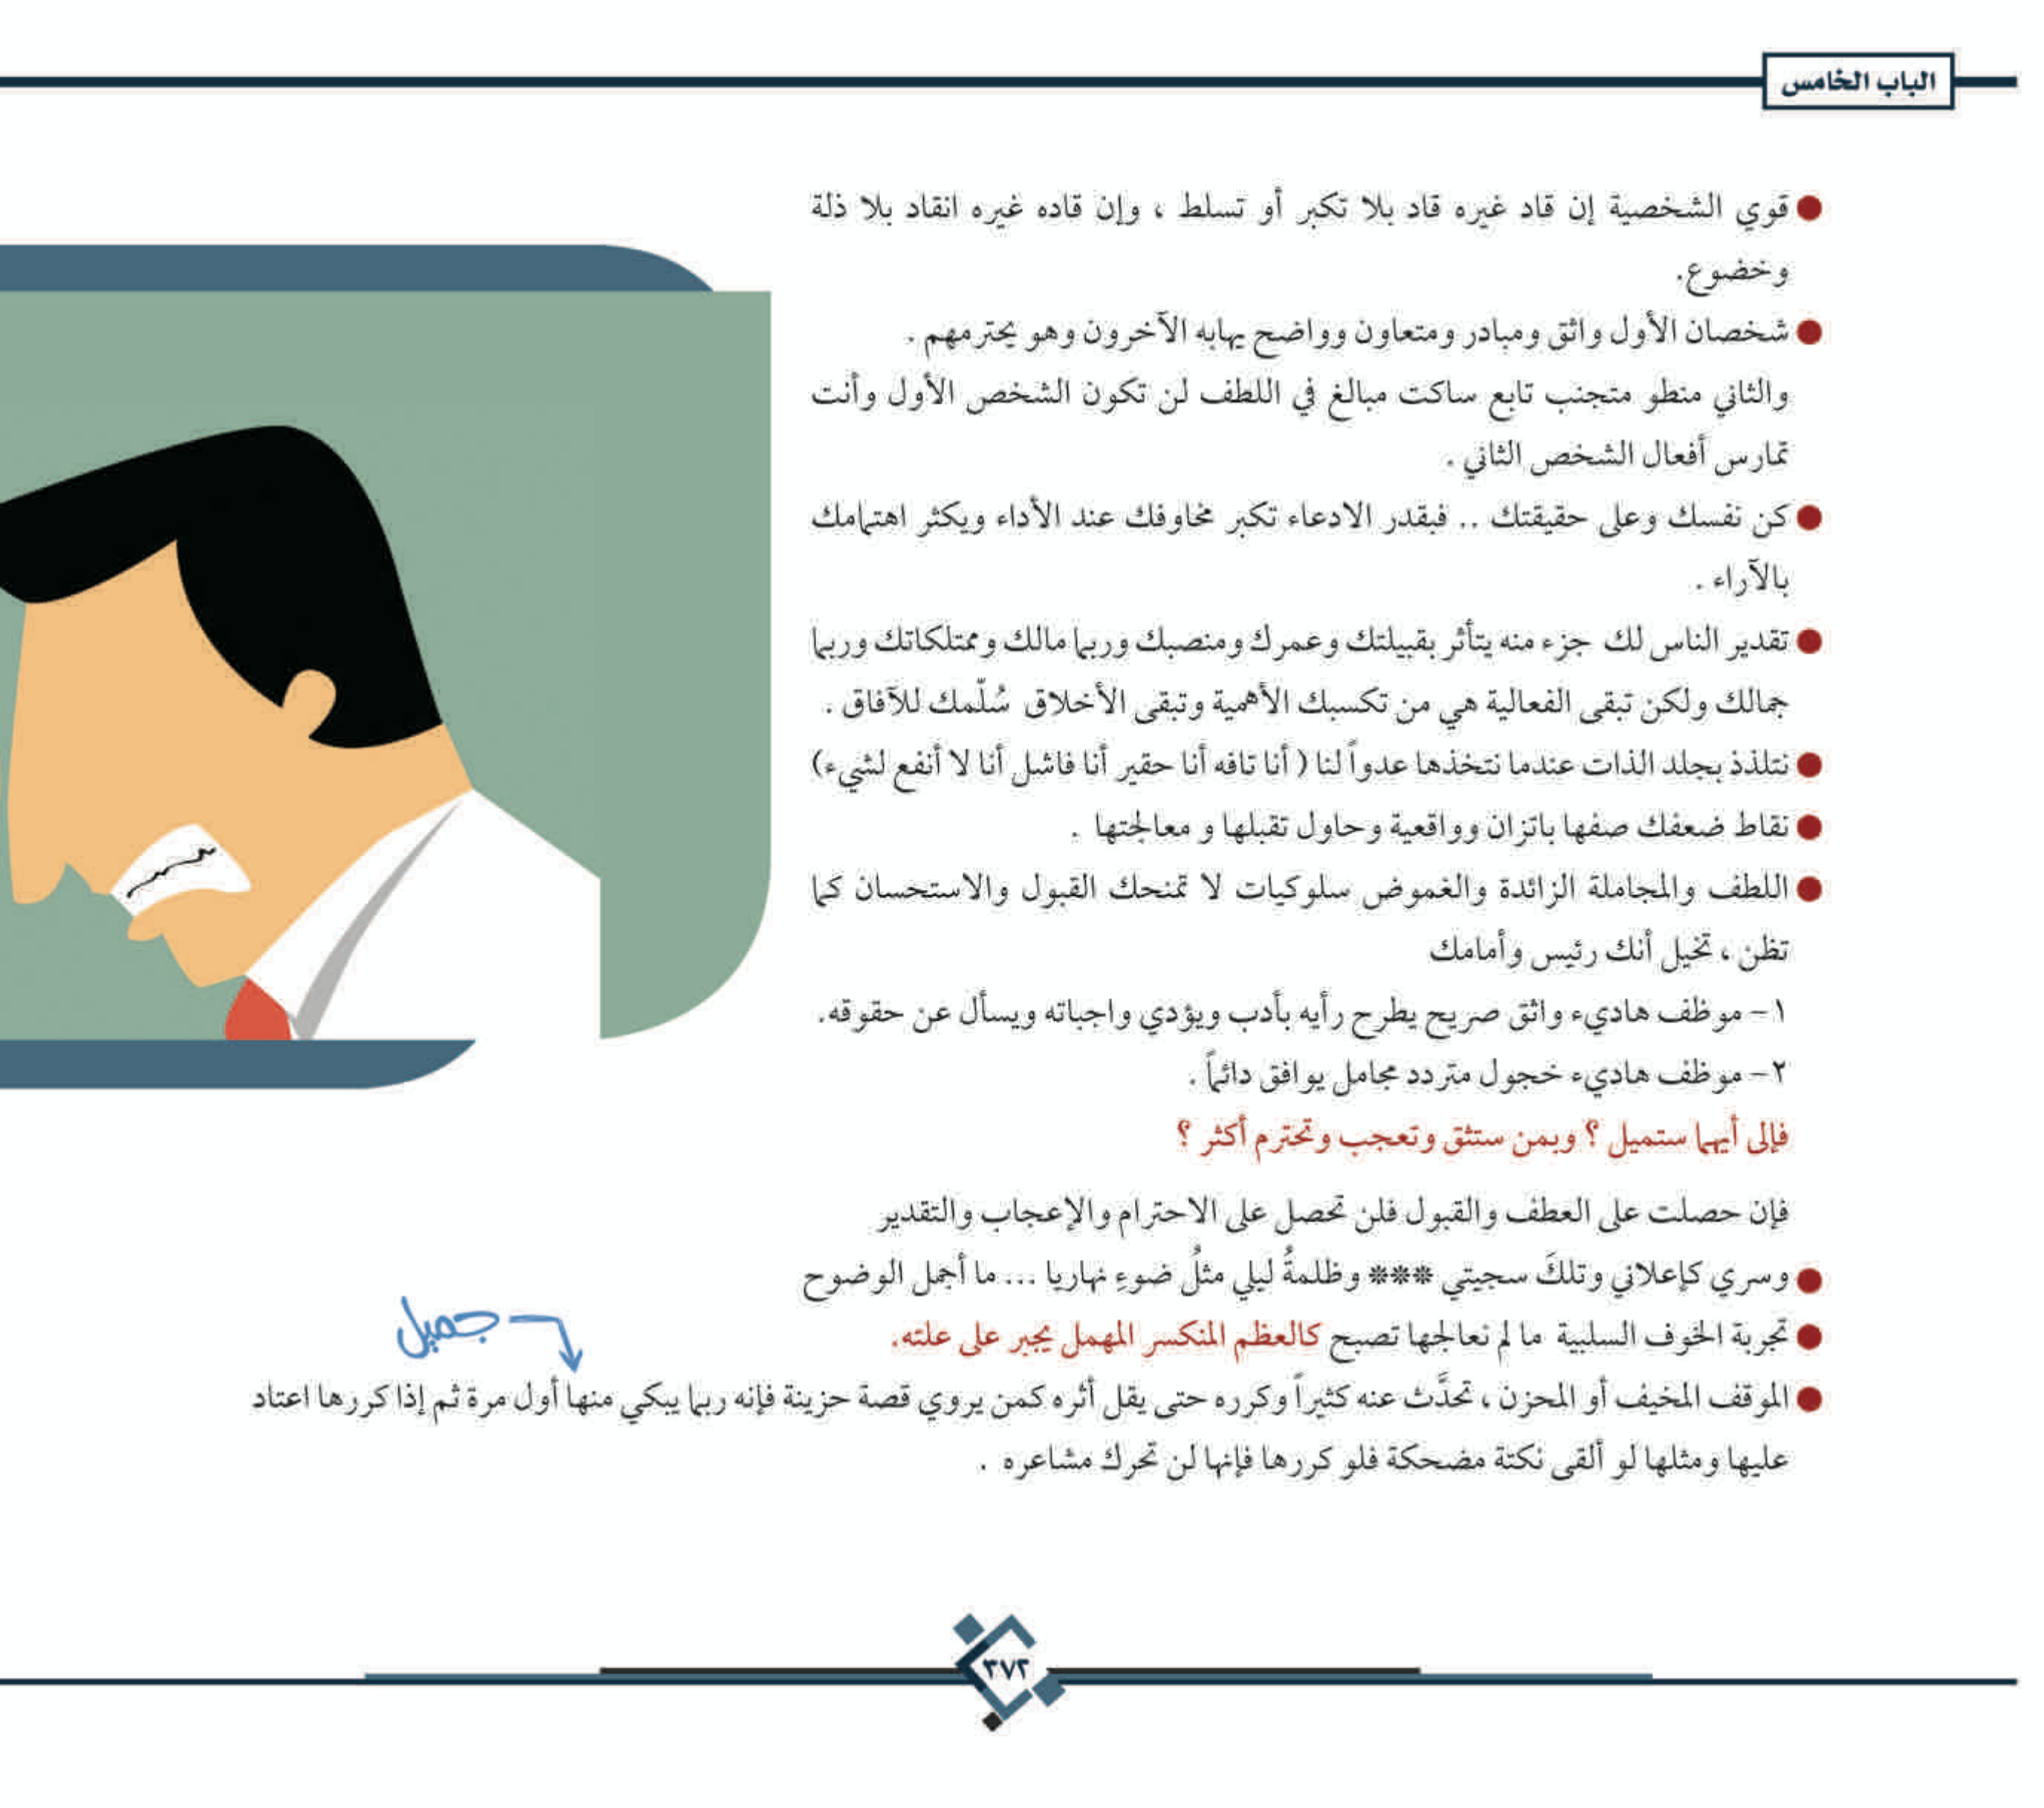 الباب الخامس
قوي الشخصية إن قاد غيره قاد بلا تكبر أو تسلط ، وإن قاده غيره انقاد بلا ذلة
وخضوع.
شخصان الأول واثق ومبادر ومتعاون وواضح يهابه الآخرون وهو يحترمهم .
والثاني منطو متجنب تابع ساكت مبالغ في اللطف لن تكون الشخص الأول وأنت
تمارس أفعال الشخص الثاني .
كن نفسك وعلى حقيقتك .. فبقدر الادعاء تكبر مخاوفك عند الأداء ويكثر اهتمامك
بالآراء .
تقدير الناس لك جزء منه يتأثر بقبيلتك وعمرك ومنصبك وربما مالك وممتلكاتك وربما
جمالك ولكن تبقى الفعالية هي من تكسبك الأهمية وتبقى الأخلاق سُلّمك للآفاق .
نتلذذ بجلد الذات عندما نتخذها عدواً لنا ( أنا تافه أنا حقير أنا فاشل أنا لا أنفع لشيء)
نقاط ضعفك صفها باتزان وواقعية وحاول تقبلها و معالجتها .
اللطف والمجاملة الزائدة والغموض سلوكيات لا تمنحك القبول والاستحسان كما
تظن ، تخيل أنك رئيس وأمامك
١- موظف هاديء واثق صريح يطرح رأيه بأدب ويؤدي واجباته ويسأل عن حقوقه.
٢- موظف هاديء خجول متردد مجامل يوافق دائماً .
فإلى أيهما ستميل ؟ وبمن ستثق وتعجب وتحترم أكثر ؟
فإن حصلت على العطف والقبول فلن تحصل على الاحترام والإعجاب والتقدير
وسري كإعلاني وتلكَ سجيتي *** وظلمةُ ليلي مثلُ ضوءِ نهاريا ... ما أجمل الوضوح
تجربة الخوف السلبية ما لم نعالجها تصبح كالعظم المنكسر المهمل يجبر على علته.
جميل
الموقف المخيف أو المحزن ، تحدَّث عنه كثيراً وكرره حتى يقل أثره كمن يروي قصة حزينة فإنه ربما يبكي منها أول مرة ثم إذا كررها اعتاد
عليها ومثلها لو ألقى نكتة مضحكة فلو كررها فإنها لن تحرك مشاعره .
٣٧٢